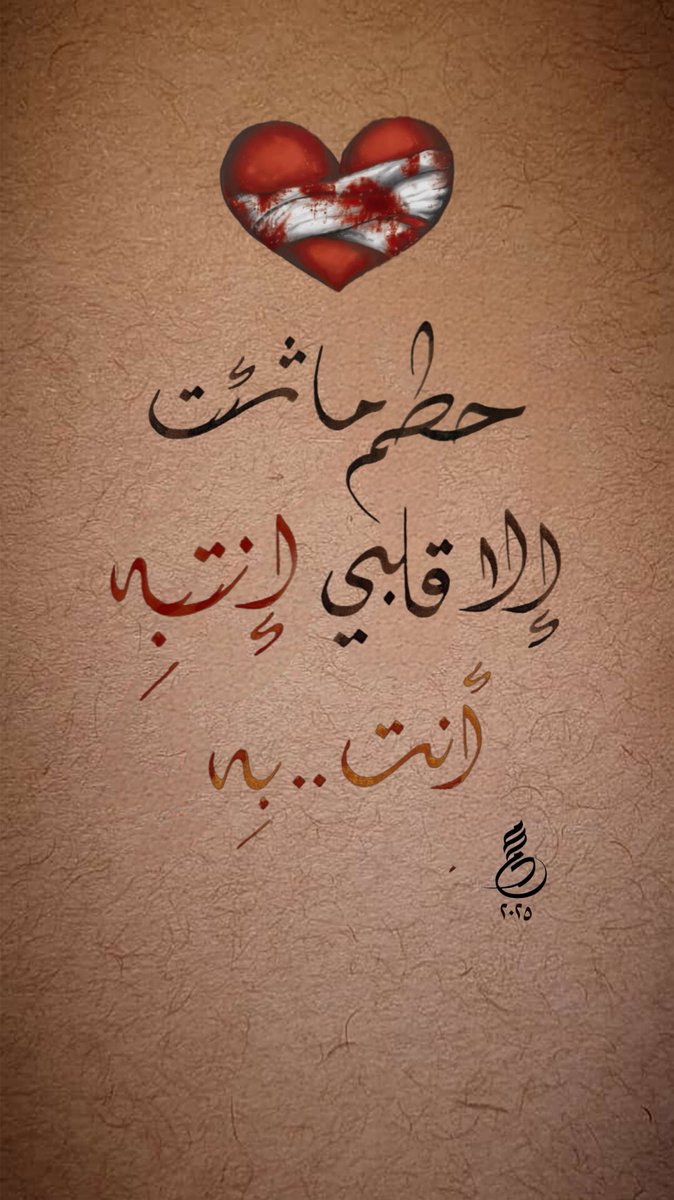 حطم ما شئت
إلا قلبي إنتبِه
أنت..بِه
٢٠٢٥